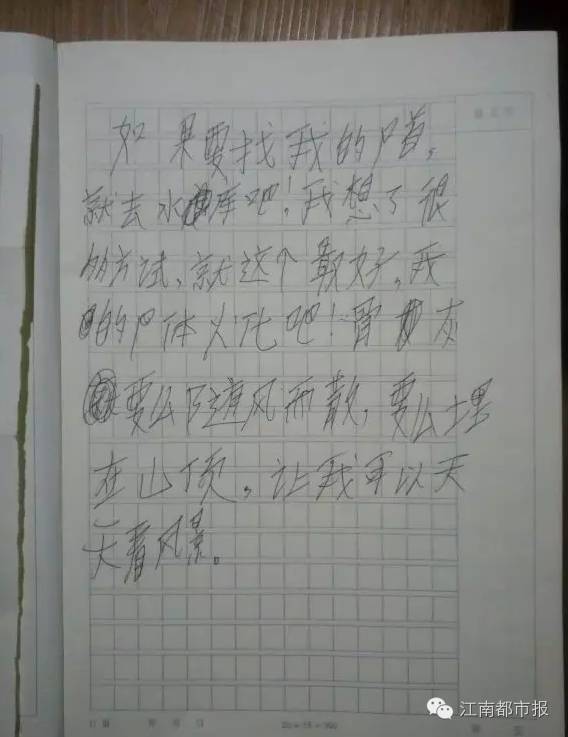 如果要找我的尸首，
就去水库吧！我想了很
多方试，就这个最好，我
的尸体火化吧！骨灰
要么随风而散，要么埋
在山顶，让我可以天
天看风景。
江南都市报